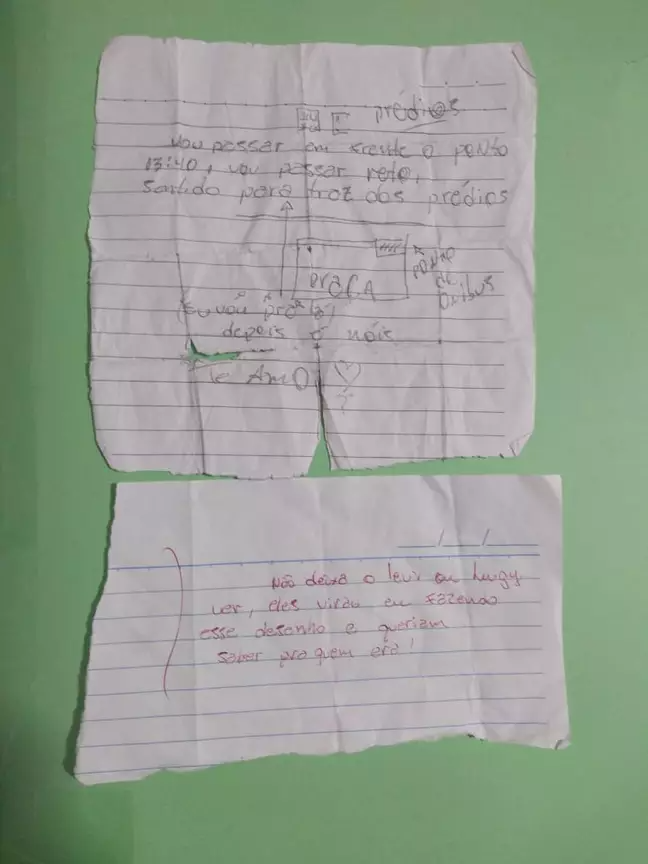 prédios
vou passar em frente o ponto
13:40, vou passar reto,
sentido para traz dos prédios
PRAÇA
ponto
de
ônibus
(Eu vou pra lá)
depois é nóis
te AmO
?
Não deixa o levir ou hugy
ver, eles virão eu fazendo
esse desenho e queriam
saber pra quem era!